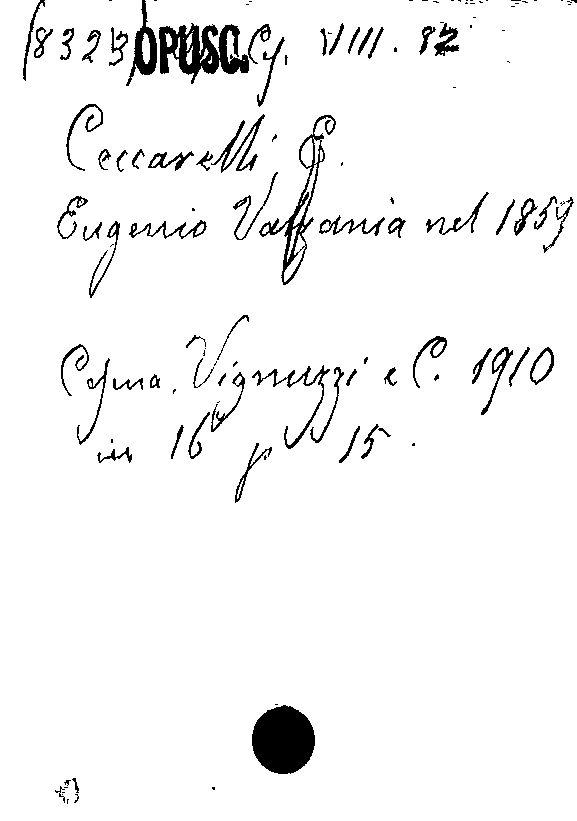 (8323) OPUSC. Cs. VIII. 82
Ceccarelli, E.
Eugenio Valzania nel 1859
Cesena. Vignuzzi e C. 1910
in 16° p 15.